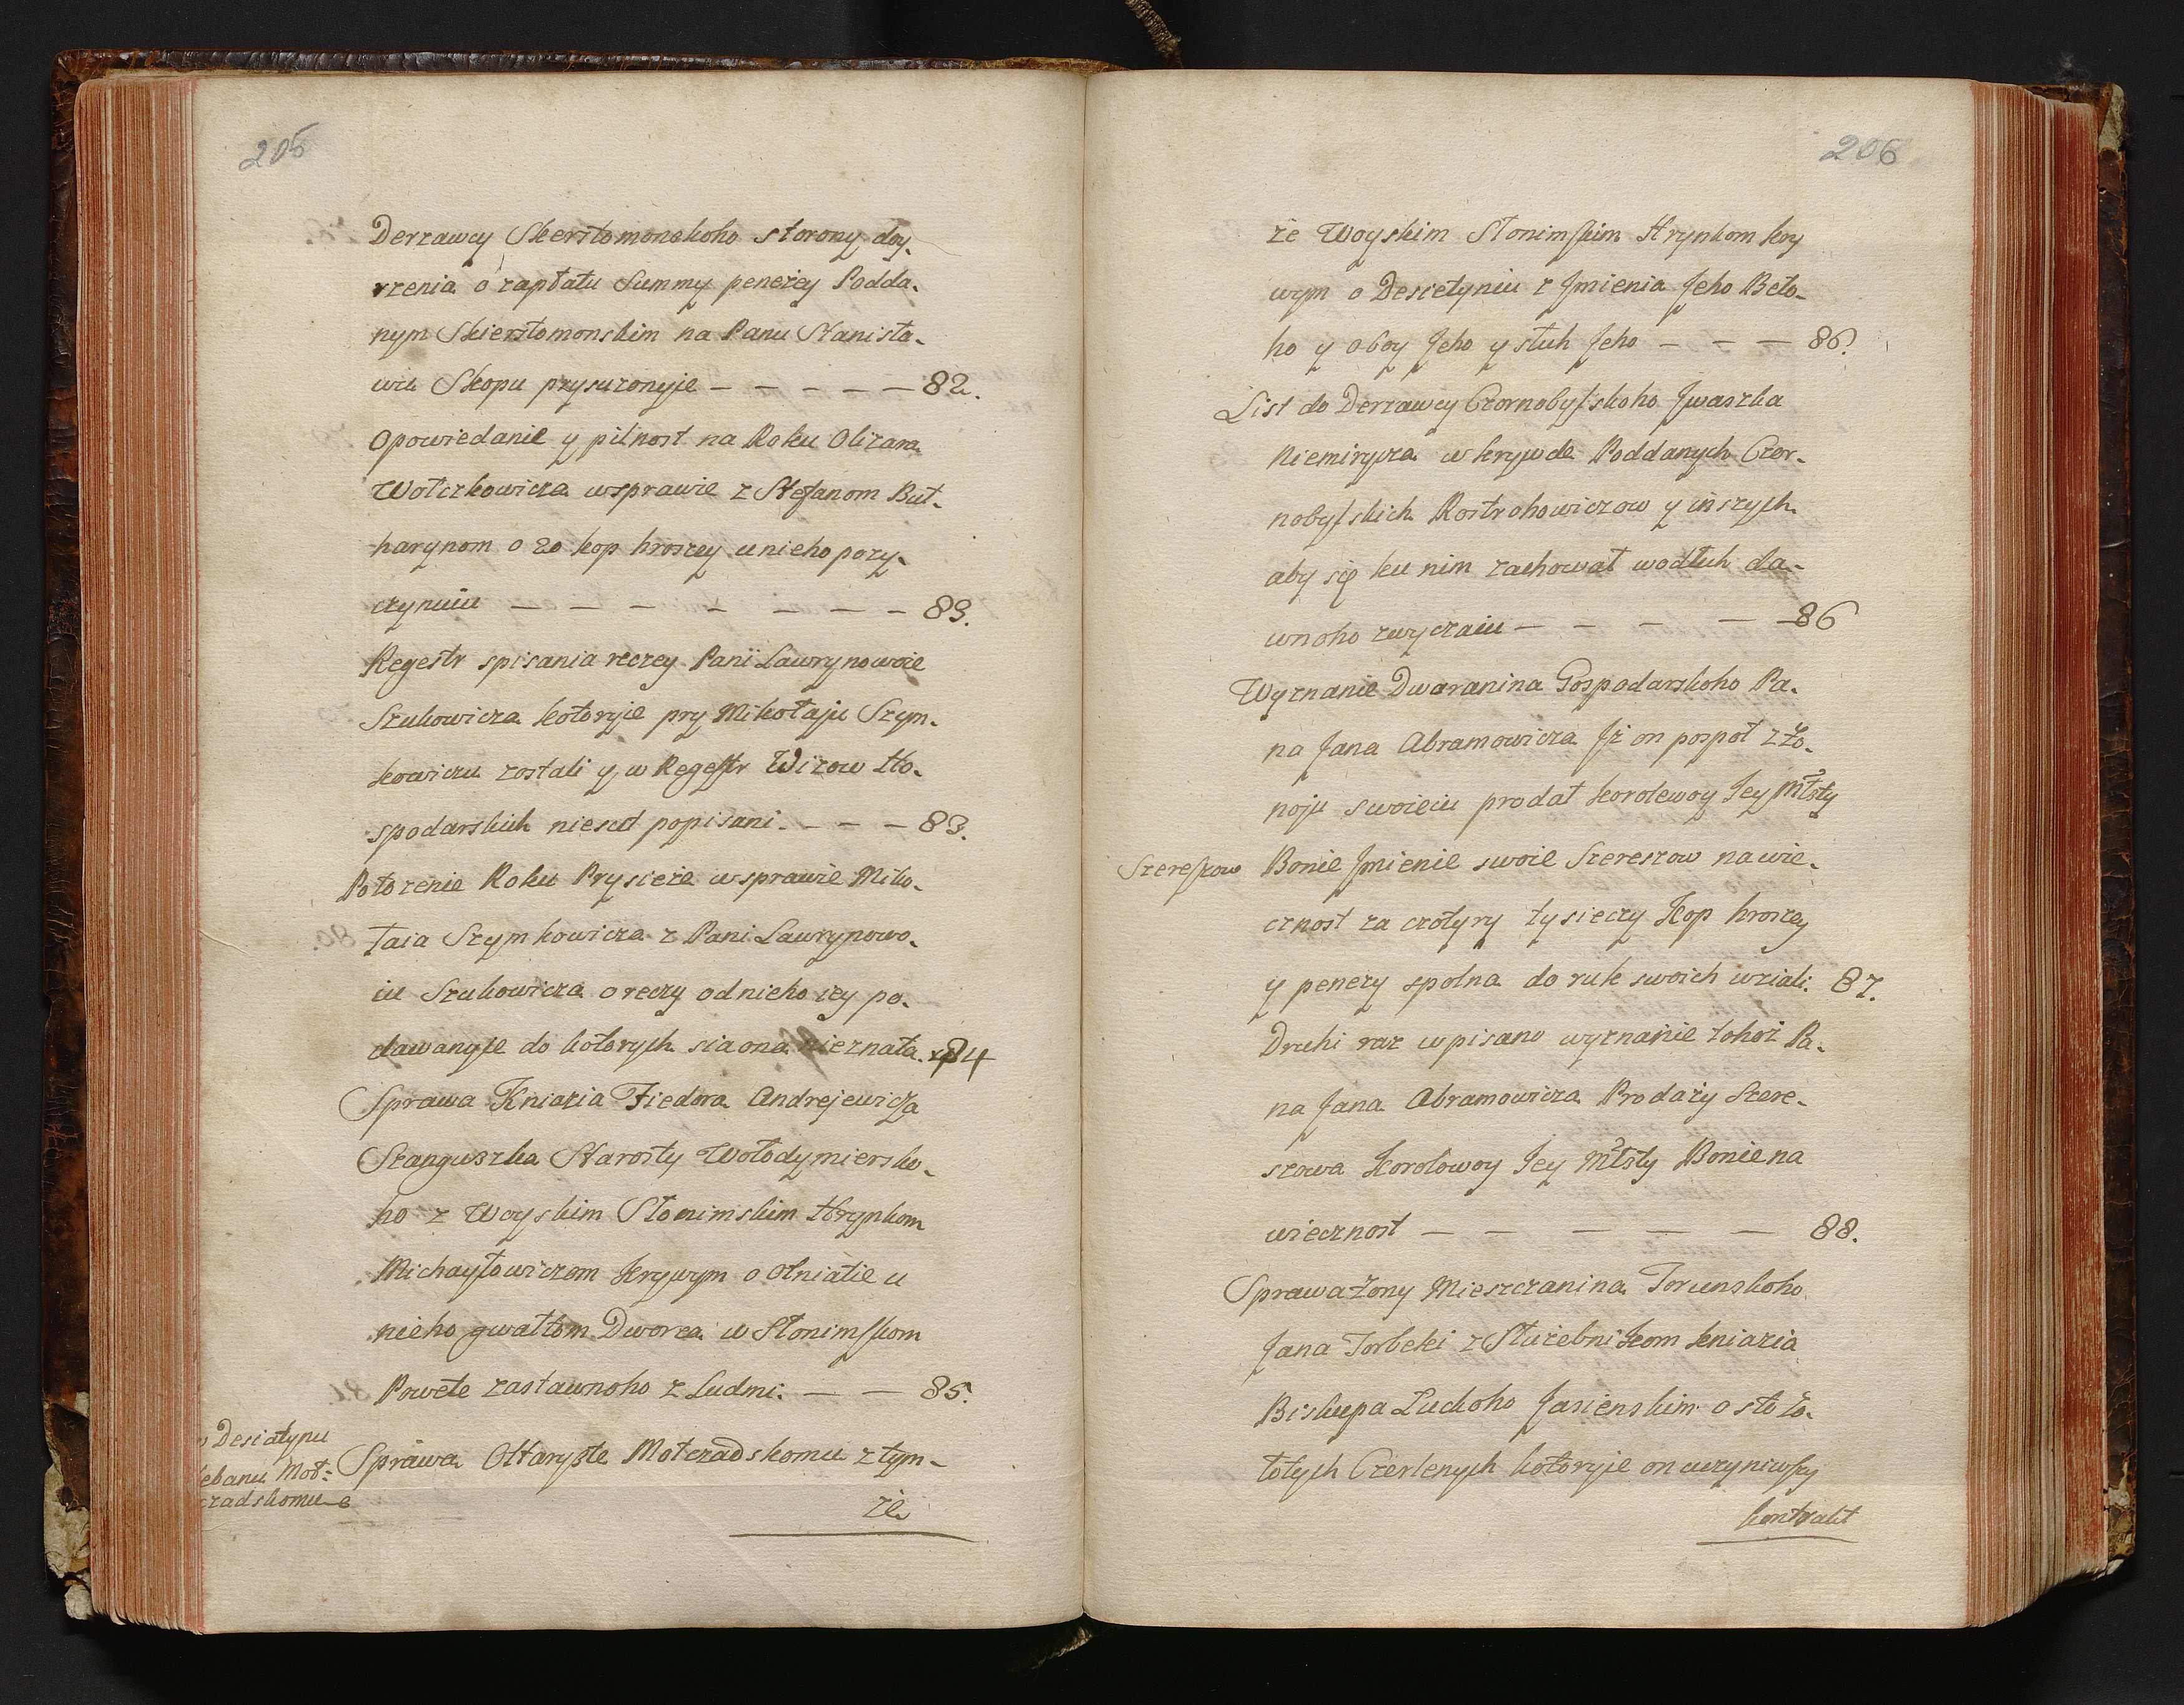 205
Derzawcy Skerstomonskoho storony doy¬
rzenia o zapłatu Summy penezey Podda¬
nym Skierstomonskim na Panu Stanisła¬
wu Skopu prysuzonyje — — — — — 82.
Opowiedanie y pilnost na Roku Olizara
Wołczkowicza wsprawie z Stefanom But¬
harynom o 20 kop hroszey unieho pozy¬
czyniu — — — — — — — 83.
Regestr spisania reczey Panï Ławrynowoie
Szukowicza kotoryje pry Mikołaju Szym¬
kowiczu zostali y w Regestr Wizow Ho¬
spodarskich niesut popisani. — — — 83.
Położenie Roku Prysieże wsprawie Miko¬
łaia Szymkowicza z Pani Ławrynowo¬
iu Szukowicza o reczy odnieho iey po¬
dawanyje do kotorych sia ona nieznała. 84
Sprawa Kniazia Fiedora Andrejewicza
Szanguszka Starosty Wołodymiersko¬
ho z Woyskim Słonimskim Hrynkom
Michayłowiczem Krywym o Otniatie u
nieho gwałtom Dworca w Słonimskom
Powete zastawnoho z Ludmi. — — 85.
Desiatynu
ebanu Moł:
czadskomu
Sprawa Ołtaryste Mołczadskomu z tym¬
że
206
że Woyskim Słonimskim Hrynkom Kry
wym o Descetyniu z Jmienia Jeho Beło¬
ho y oboy Jeho y słuh Jeho — — — 86.
List do Derzawcy Czornobylskoho Jwaszka
Niemirycza w krywde Poddanych Czor¬
nobylskich Rostrohowiczow y inszych
aby się ku nim zachował wodłuh da¬
wnoho zwyczaiu — — — — — 86
Wyznanie Dwaranina Gospodarskoho Pa¬
na Jana Abramowicza Jż on pospoł z Żo¬
noju swoieiu prodał Korolewoy Jey Młsty
Szereszow
Bonie Jmienie swoie Szereszow nawie¬
cznost za czotyry tysieczy Kop hroszey
y penezy spolna do ruk swoich wziali. 87.
Druhi raz wpisano wyznanie tohoż Pa¬
na Jana Abramowicza Prodaży Szere¬
szowa Korolowoy Jey Młsty Bonie na
wiecznost — — — — — 88.
Sprawa Żony Mieszczanina Torunskoho
Jana Torbeki z Służebnikom Kniazia
Biskupa Łuckoho Jasienskim o sto Zo¬
łotych Czerlenych kotoryje on uczyniwszy
kontrakt